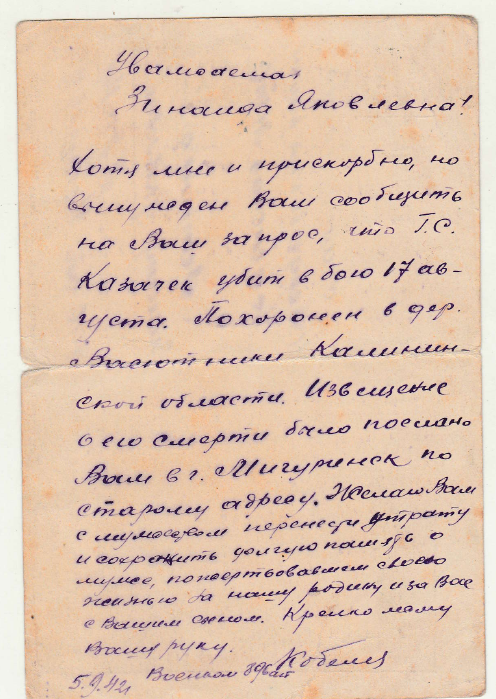 Уважаемая
Зинаида Яковлевна!
Хотя мне и прискорбно, но
вынужден Вам сообщить
на Ваш запрос, что Г.С.
Казачек убит в бою 17 ав-
густа. Похоронен в дер.
Васютники Калинин-
ской области. Извещение
о его смерти было послано
Вам в г. по
старому адресу. Желаю Вам
с мужеством перенести утрату
и сохранить долгую память о
муже, пожертвовавшем своею
жизнью за нашу родину и за Вас
с Вашим сыном. Крепко жму
Вашу руку.
Военком
5.9.42